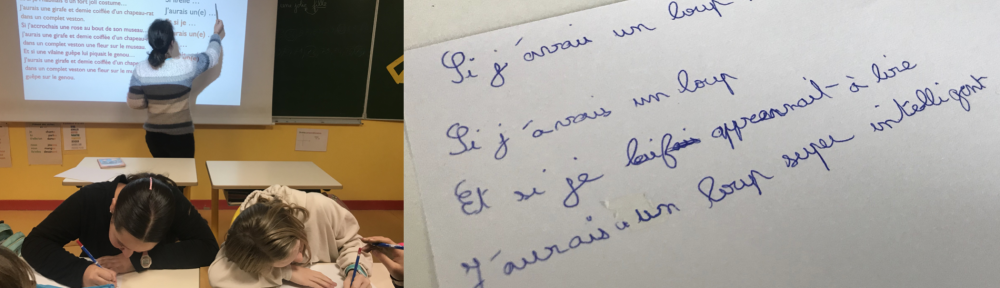 d'un fort joli costume…
J'aurais une girafe et demie coiffée d'un chapeau-rat
dans un complet veston.
Si j'accrochais une rose au bout de son museau
J'aurais une girafe et demie coiffée d'un chapeau
dans un complet veston une fleur sur le museau.
Et si une vilaine guêpe lui piquait le genou…
J'aurais une girafe et demie coiffée d'un
dans un complet veston une fleur sur le
guêpe sur le genou.
J'aurais un(e) …
si je …
aurais un(e) …
Si j'avais un loup
Si j'avais un loup
Et si je apprennait à lire
J'aurais un loup super intelligent